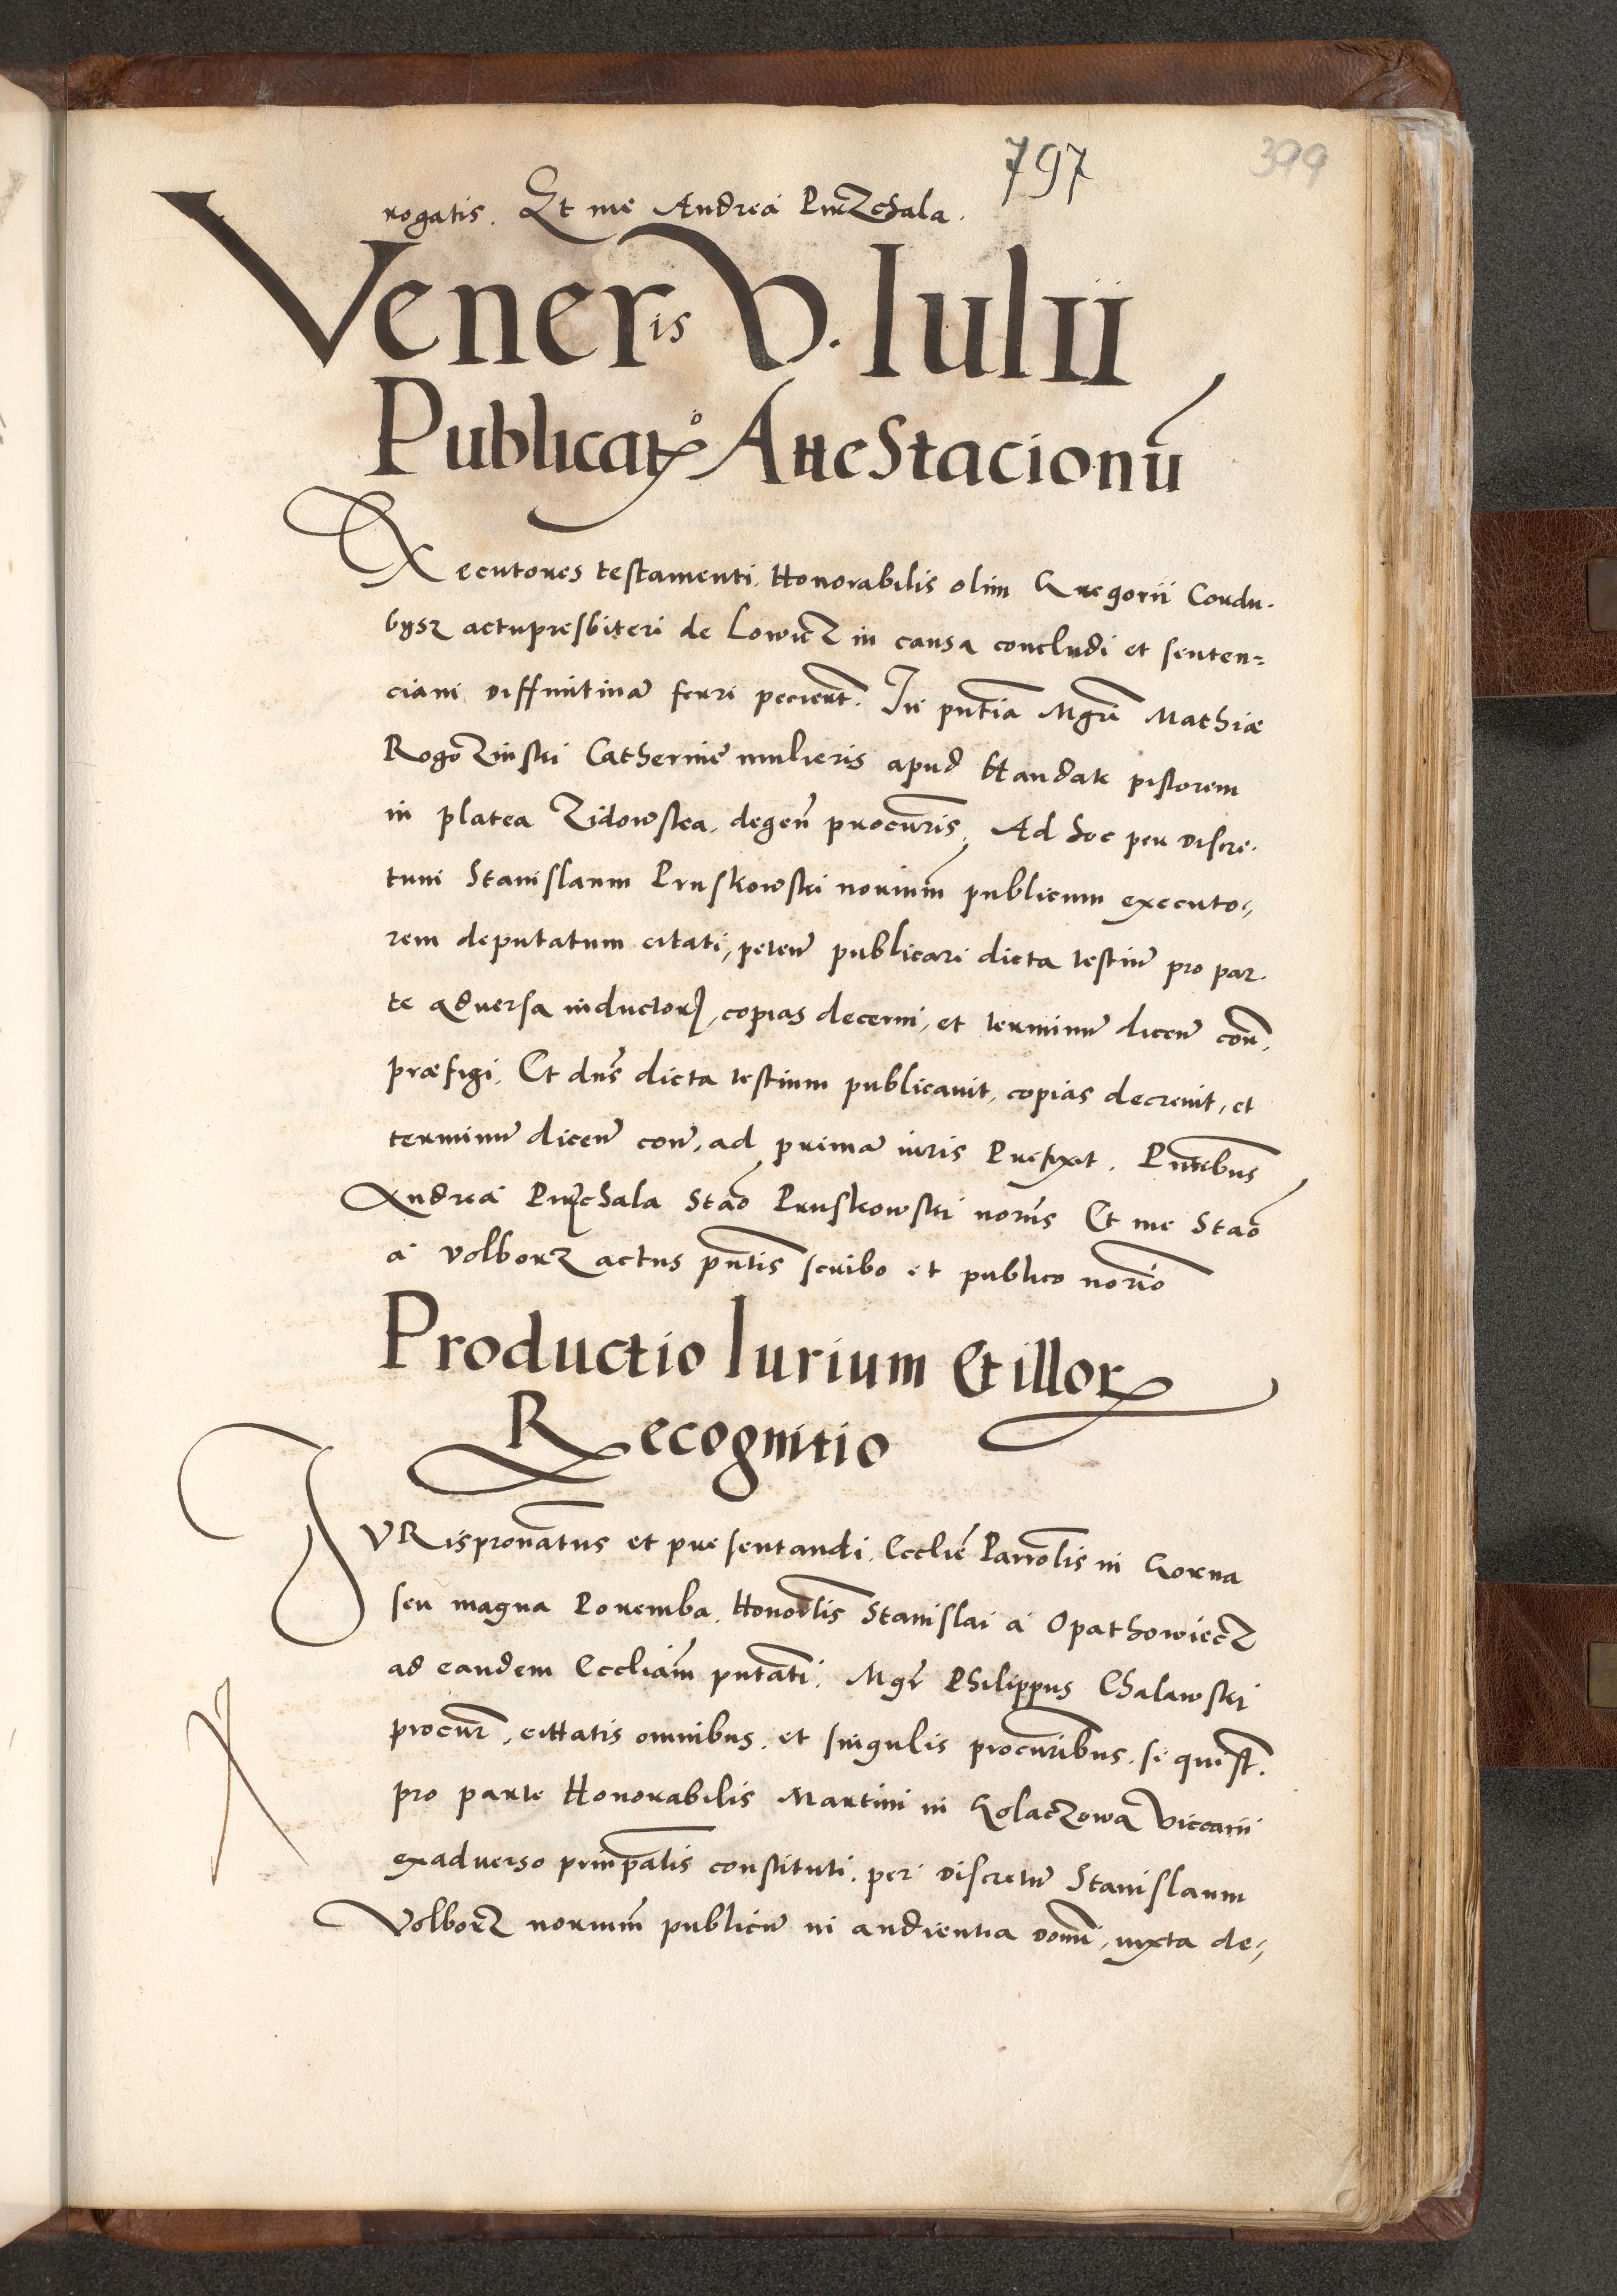 797
399
rogatis. Et me Andrea Pur̄Zchala.
Veneris V. Iulii
Publicatº Attestacionū
Executores testamenti. Honorabilis olim Gregorii Cordu-
bysz actupresbiteri de LowicZ in causa concludi et senten=
ciam diffinitivā ferri peciert̄. In pn̄tia Mgrī Mathiæ
RogoZinski Catherinē mulieris apud Handak pistorem
in platea Zidowska. degen̄ procur̄is. Ad hoc per discre-
tum Stanislaum Pruskowski nor̄ium publicum executo-
rem deputatum citati, peten̄ publicari dicta testiū pro par-
te adversa inductorꝝ, copias decerni, et terminū dicen̄ con̄.
præfigi. Et dn̄s dicta testium publicavit, copias decrevit, et
terminū dicen̄ con̄, ad primā iuris Prefixit. Pn̄tibus
Andrea PurZchala Staō Pruskowski nor̄iis Et me Staō
a Volborz actus pn̄tis scriba et publico nor̄io
Productio Iurium Et illorꝝ
Recognitio
IVRispron̄atus et presentandi. Eccliē Parrōlis in Gorna
seu magna Poremba. Honor̄lis Stanislai a OpathowiecZ
ad eandem Eccliām pn̄tati. Mgr̄ Philippus Chalawski
procur̄, cittatis omnibus. et singulis procur̄ibus. si qui st̄.
pro parte Honorabilis Martini in GolaczZowa Viccarii
exadverso prin̄palis constituti. per discretū Stanislaum
VolborZ nor̄ium publicū in audientia domi, iuxta de-